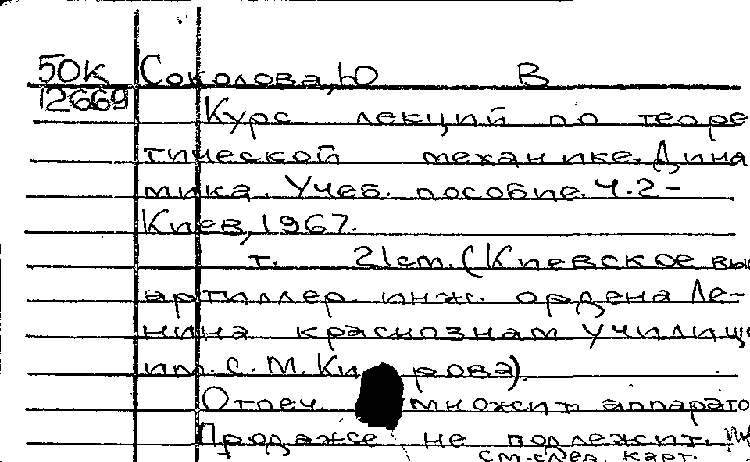 50К Соколова, Ю В
12669
Курс лекций по теоре
тической механике. Дина
мика. Учеб. пособие. Ч.2-
Киев, 1967.
т. 21 см. (Киевское выс
артиллер. инж. ордена Ле-
нина краснознам училище
им. С. М. Ки рова).
Отпеч множит аппарато
Продаже не подлежит.
см. след. карт.